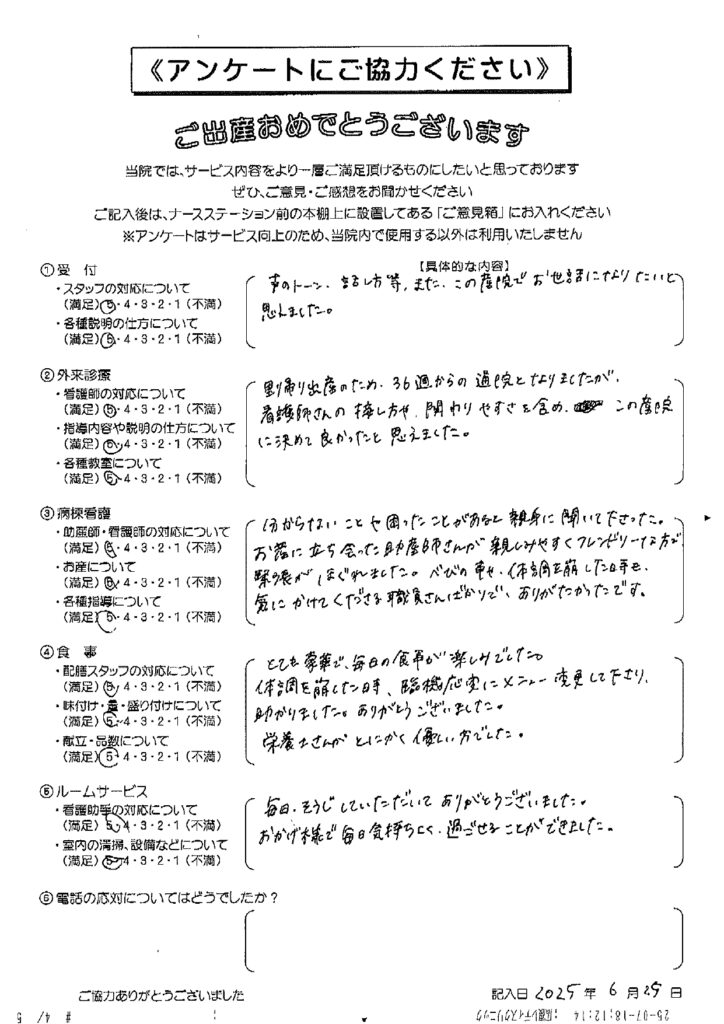 《アンケートにご協力ください》
ご出産おめでとうございます
当院では、サービス内容をより一層ご満足頂けるものにしたいと思っております
ぜひ、ご意見・ご感想をお聞かせください
ご記入後は、ナースステーション前の本棚上に設置してある「ご意見箱」にお入れください
※アンケートはサービス向上のため、当院内で使用する以外は利用いたしません
【具体的な内容】
①受 付
・スタッフの対応について
(満足) 5・4・3・2・1 (不満)
・各種説明の仕方について
(満足) 5・4・3・2・1 (不満)
声のトーン、話し方等、また、この産院でお世話になりたいと
思えました。
②外来診療
・看護師の対応について
(満足) 5・4・3・2・1 (不満)
・指導内容や説明の仕方について
(満足) 5・4・3・2・1 (不満)
・各種教室について
(満足) 5・4・3・2・1 (不満)
里帰り出産のため、36週からの通院となりましたが、
看護師さんの接し方や、関わりやすさを含め、この産院
に決めて良かったと思えました。
③病棟看護
・助産師・看護師の対応について
(満足) 5・4・3・2・1 (不満)
・お産について
(満足) 5・4・3・2・1 (不満)
・各種指導について
(満足) 5・4・3・2・1 (不満)
分からないことや困ったことがあると親身に聞いて下さった。
お産に立ち会った助産師さんが親しみやすくフレンドリーな方で
緊張がほぐれました。べびの事や、体調を崩した時も、
気にかけてくださる職員さんばかりで、ありがたかったです。
④食 事
・配膳スタッフの対応について
(満足) 5・4・3・2・1 (不満)
・味付け・量・盛り付けについて
(満足) 5・4・3・2・1 (不満)
・献立・品数について
(満足) 5・4・3・2・1 (不満)
とても豪華で、毎日の食事が楽しみでした。
体調を崩した時、臨機応変にメニュー変更して下さり、
助かりました。ありがとうございました。
栄養士さんがとにかく優しい方でした。
⑤ルームサービス
・看護助手の対応について
(満足) 5・4・3・2・1 (不満)
・室内の清掃、設備などについて
(満足) 5・4・3・2・1 (不満)
毎日、そうじしていただいてありがとうございました。
おかげ様で毎日気持ちよく、過ごせることができました。
⑥電話の応対についてはどうでしたか?
ご協力ありがとうございました
記入日 2025 年 6 月 25 日
25-07-18;12:14
# 4/ 5